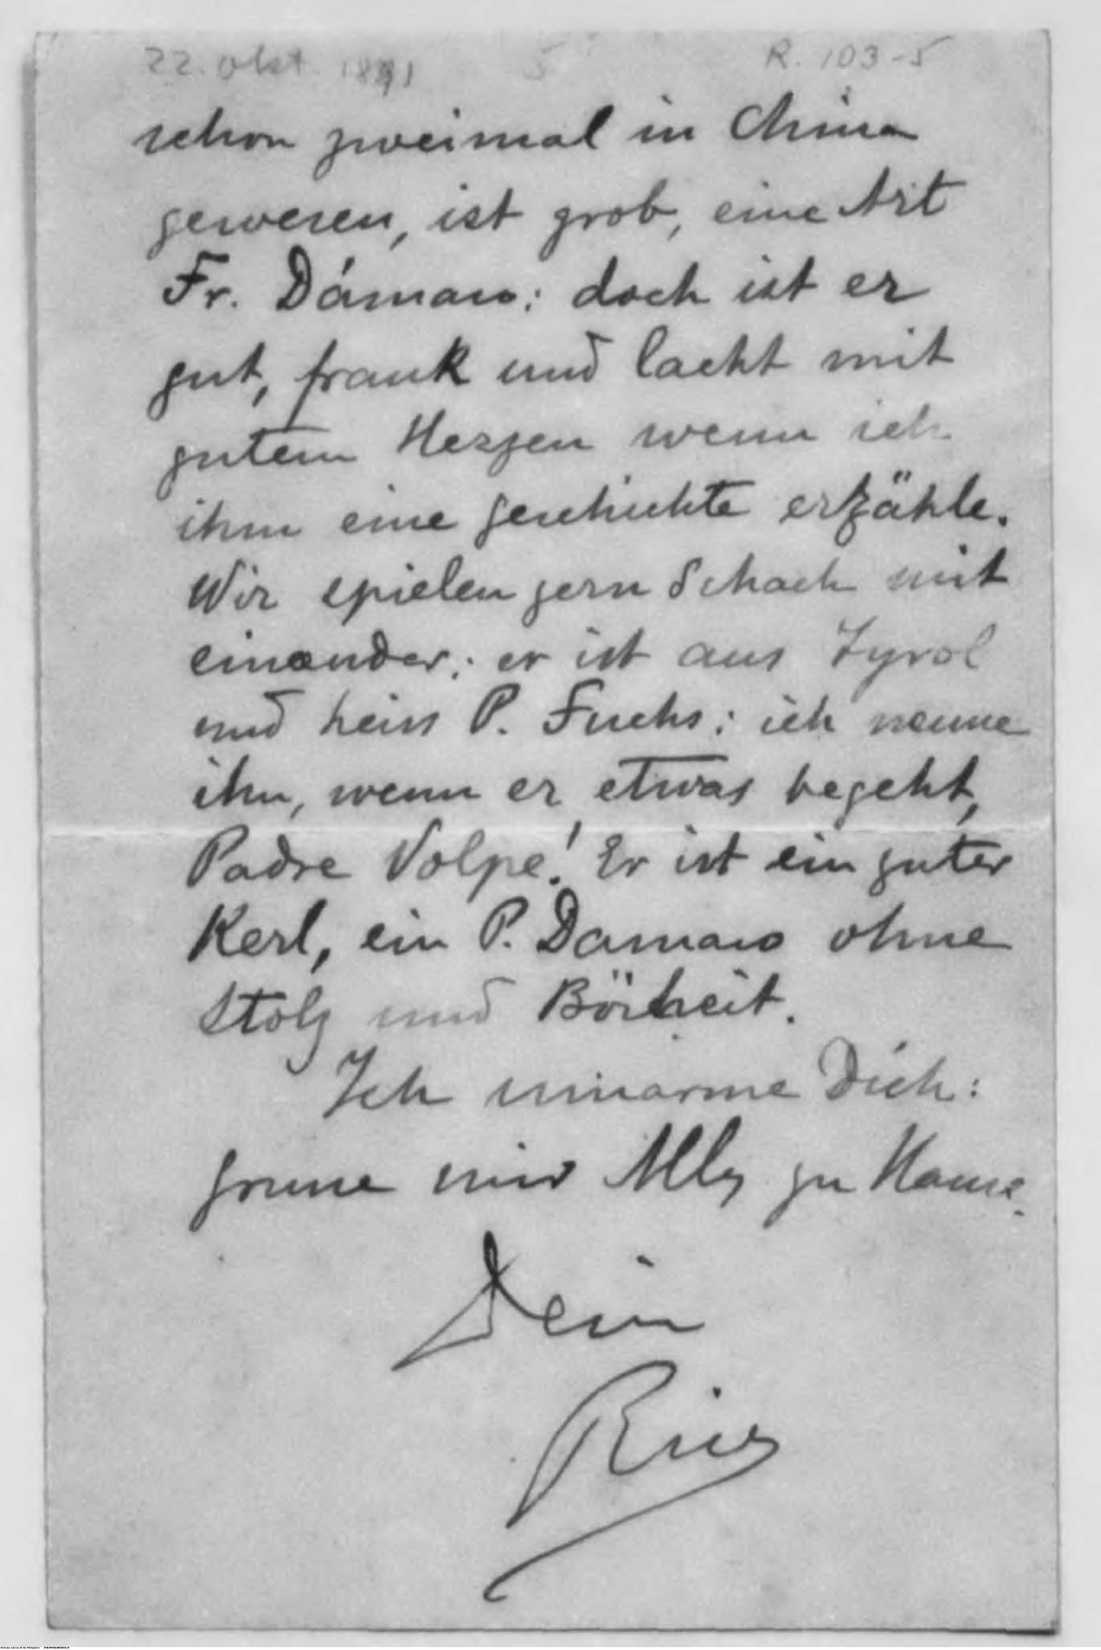 22. Okt. 1891 5 R. 103-5
schon zweimal in China
gewesen, ist grob, eine Art
Fr. Dámaso: doch ist er
gut, frank und lacht mit
gutem Herzen wenn ich
ihm eine geschichte erzähle.
Wir spielen gern Schach mit
einander: er ist aus Tyrol
und heiss P. Fuchs: ich nenne
ihn, wenn er etwas begeht,
Padre Volpe! Er ist ein guter
Kerl, ein P. Damaso ohne
Stolz und Bösheit.
Ich umarme Dich:
grusse mir Alle zu Hause.
Dein
Rizal